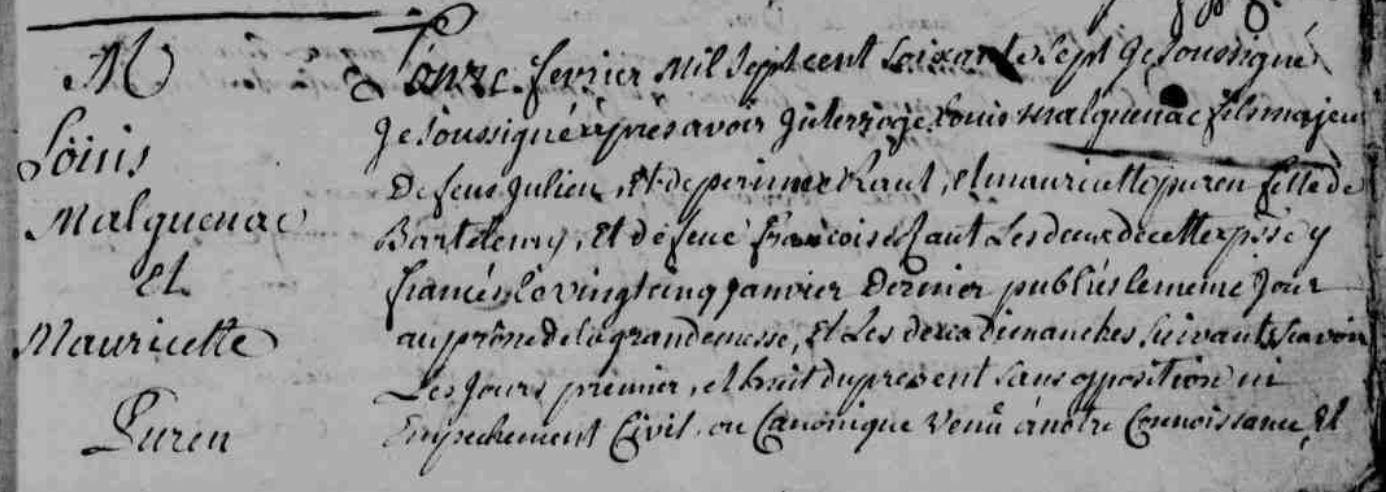 M
Loüis
Malguenac
Et
Mauricette
Puren
L'onze fevrier mil sept cent soixante sept Je soussigné
Je soussigné apres avoir interrogé Louis malguenac fils majeur
De feue Julien, et de perinne Raut, et mauricette puren fille de
Bartelemy, Et de feue françoise Raut Les deux de cette psse y
fiancés le vingt cinq janvier Dernier publiés le meme Jour
au prône de la grande messe, Et Les deux dimanches suivants savoir
Les Jours premier, et huit du present sans opposition ni
Empechement Civil ou Canonique Venü a notre Connoissance, Et